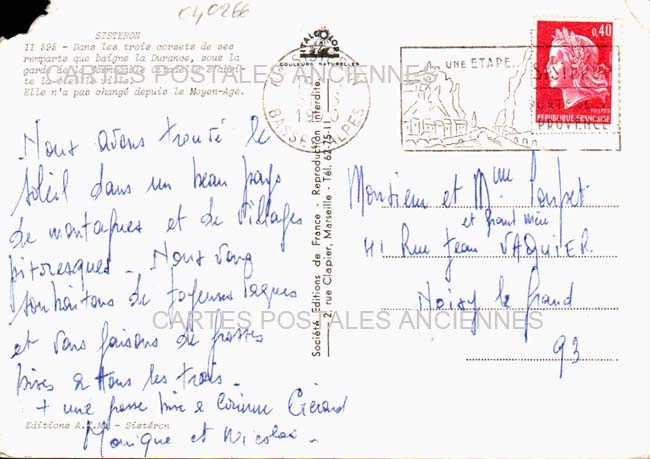 c40266
SISTERON
11 595 - Dans les trois corsets de ses
remparts que baigne la Durance, sous la
garde de
la vieille ville.
Elle n'a pas changé depuis le Moyen-Age.
CARTES POSTALES ANCIENNES
Nous avons trouvé le
soleil dans un beau pays
de montagnes et de villages
pitoresques. Nous vous
souhaitons de joyeuses Paques
et vous faisons de grosses
bises à tous les trois.
+ une grosse bise à Corinne Gérard
Monique et Nicolas.
Editions A. - Sistéron
COULEURS NATURELLES
Société Editions de France - Reproduction interdite
2, rue Clapier, Marseille - Tél. 62-75-15
BASSES ALPES
UNE ETAPE
SISTERON
PORTE DE LA
PROVENCE
0,40
POSTES
REPUBLIQUE FRANÇAISE
Monsieur et Mme
et Grand mère
41 Rue Jean VAQUIER
Noisy le Grand
93
CARTES POSTALES ANCIENNES